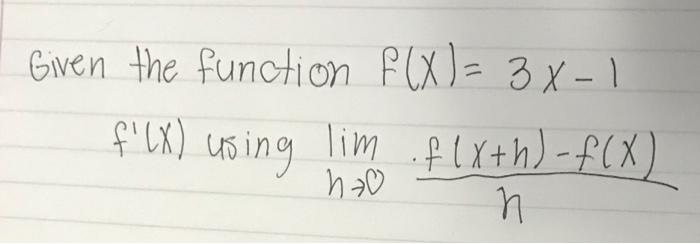 Given the function f(x) = 3x - 1
f'(x) using lim h→0 f(x+h) - f(x) / h